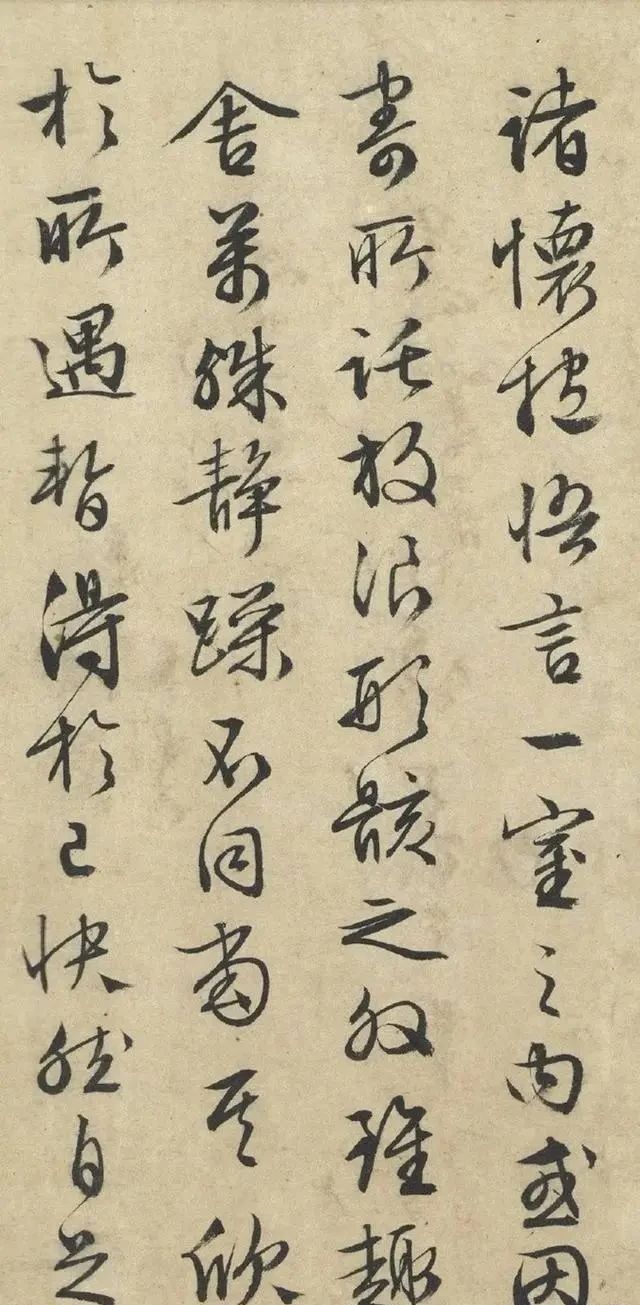 諸懷抱悟言一室之内或因
寄所託放浪形骸之外雖趣
舍萬殊静躁不同當其欣
於所遇暫得於己快然自足